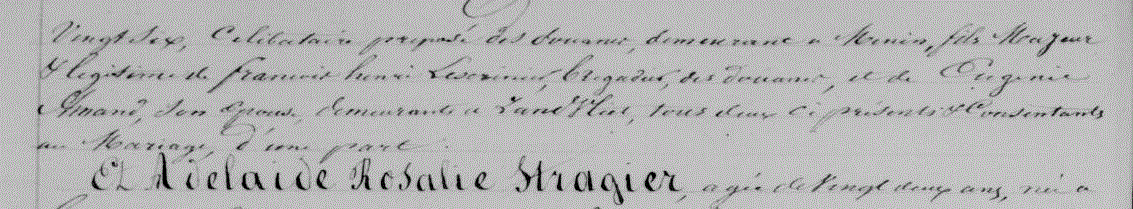 Vingt six, Celibataire préposé des douanes, demeurant a Menin, fils Majeur
& légitime de francois henri Brigadier, des Douanes, et de Eugenie
Amand, son Epouse, demeurants a Zand Vliet, tous deux ci présents & Consentants
au Mariage, d'une part.
Et Adelaide Rosalie Stragier, agée de Vingt deux ans, née a